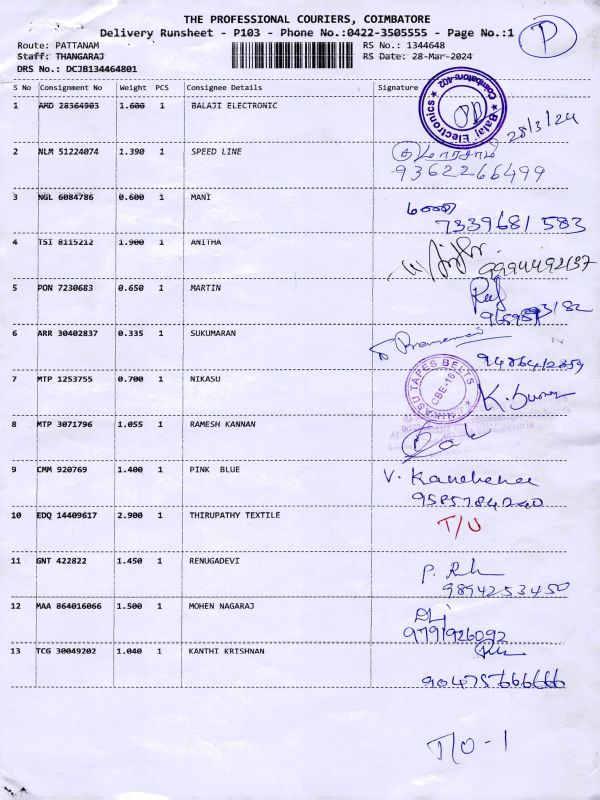 THE PROFESSIONAL COURIERS, COIMBATORE
Delivery Runsheet - P103 - Phone No.:0422-3505555 - Page No.:1
P
Route: PATTANAM RS No.: 1344648
Staff: THANGARAJ RS Date: 28-Mar-2024
DRS No.: DCJB134464801
S No Consignment No Weight PCS Consignee Details Signature
1 AMD 28364903 1.600 1 BALAJI ELECTRONIC
Balaji Electronics Coimbatore-402
28/3/24
2 NLM 51224074 1.390 1 SPEED LINE
9362266499
3 NGL 6084786 0.600 1 MANI
7339681583
4 TSI 8115212 1.900 1 ANITHA
9994492137
5 PON 7230683 0.650 1 MARTIN
6 ARR 30402837 0.335 1 SUKUMARAN
7 MTP 1253755 0.700 1 NIKASU
NIKASU TAPES BELTS CBE-16
8 MTP 3071796 1.055 1 RAMESH KANNAN
9 CMM 920769 1.400 1 PINK BLUE
V.
10 EDQ 14409617 2.900 1 THIRUPATHY TEXTILE
T/U
11 GNT 422822 1.450 1 RENUGADEVI
9894253450
12 MAA 864016066 1.500 1 MOHEN NAGARAJ
9791926092
13 TCG 30049202 1.040 1 KANTHI KRISHNAN
T/O - 1